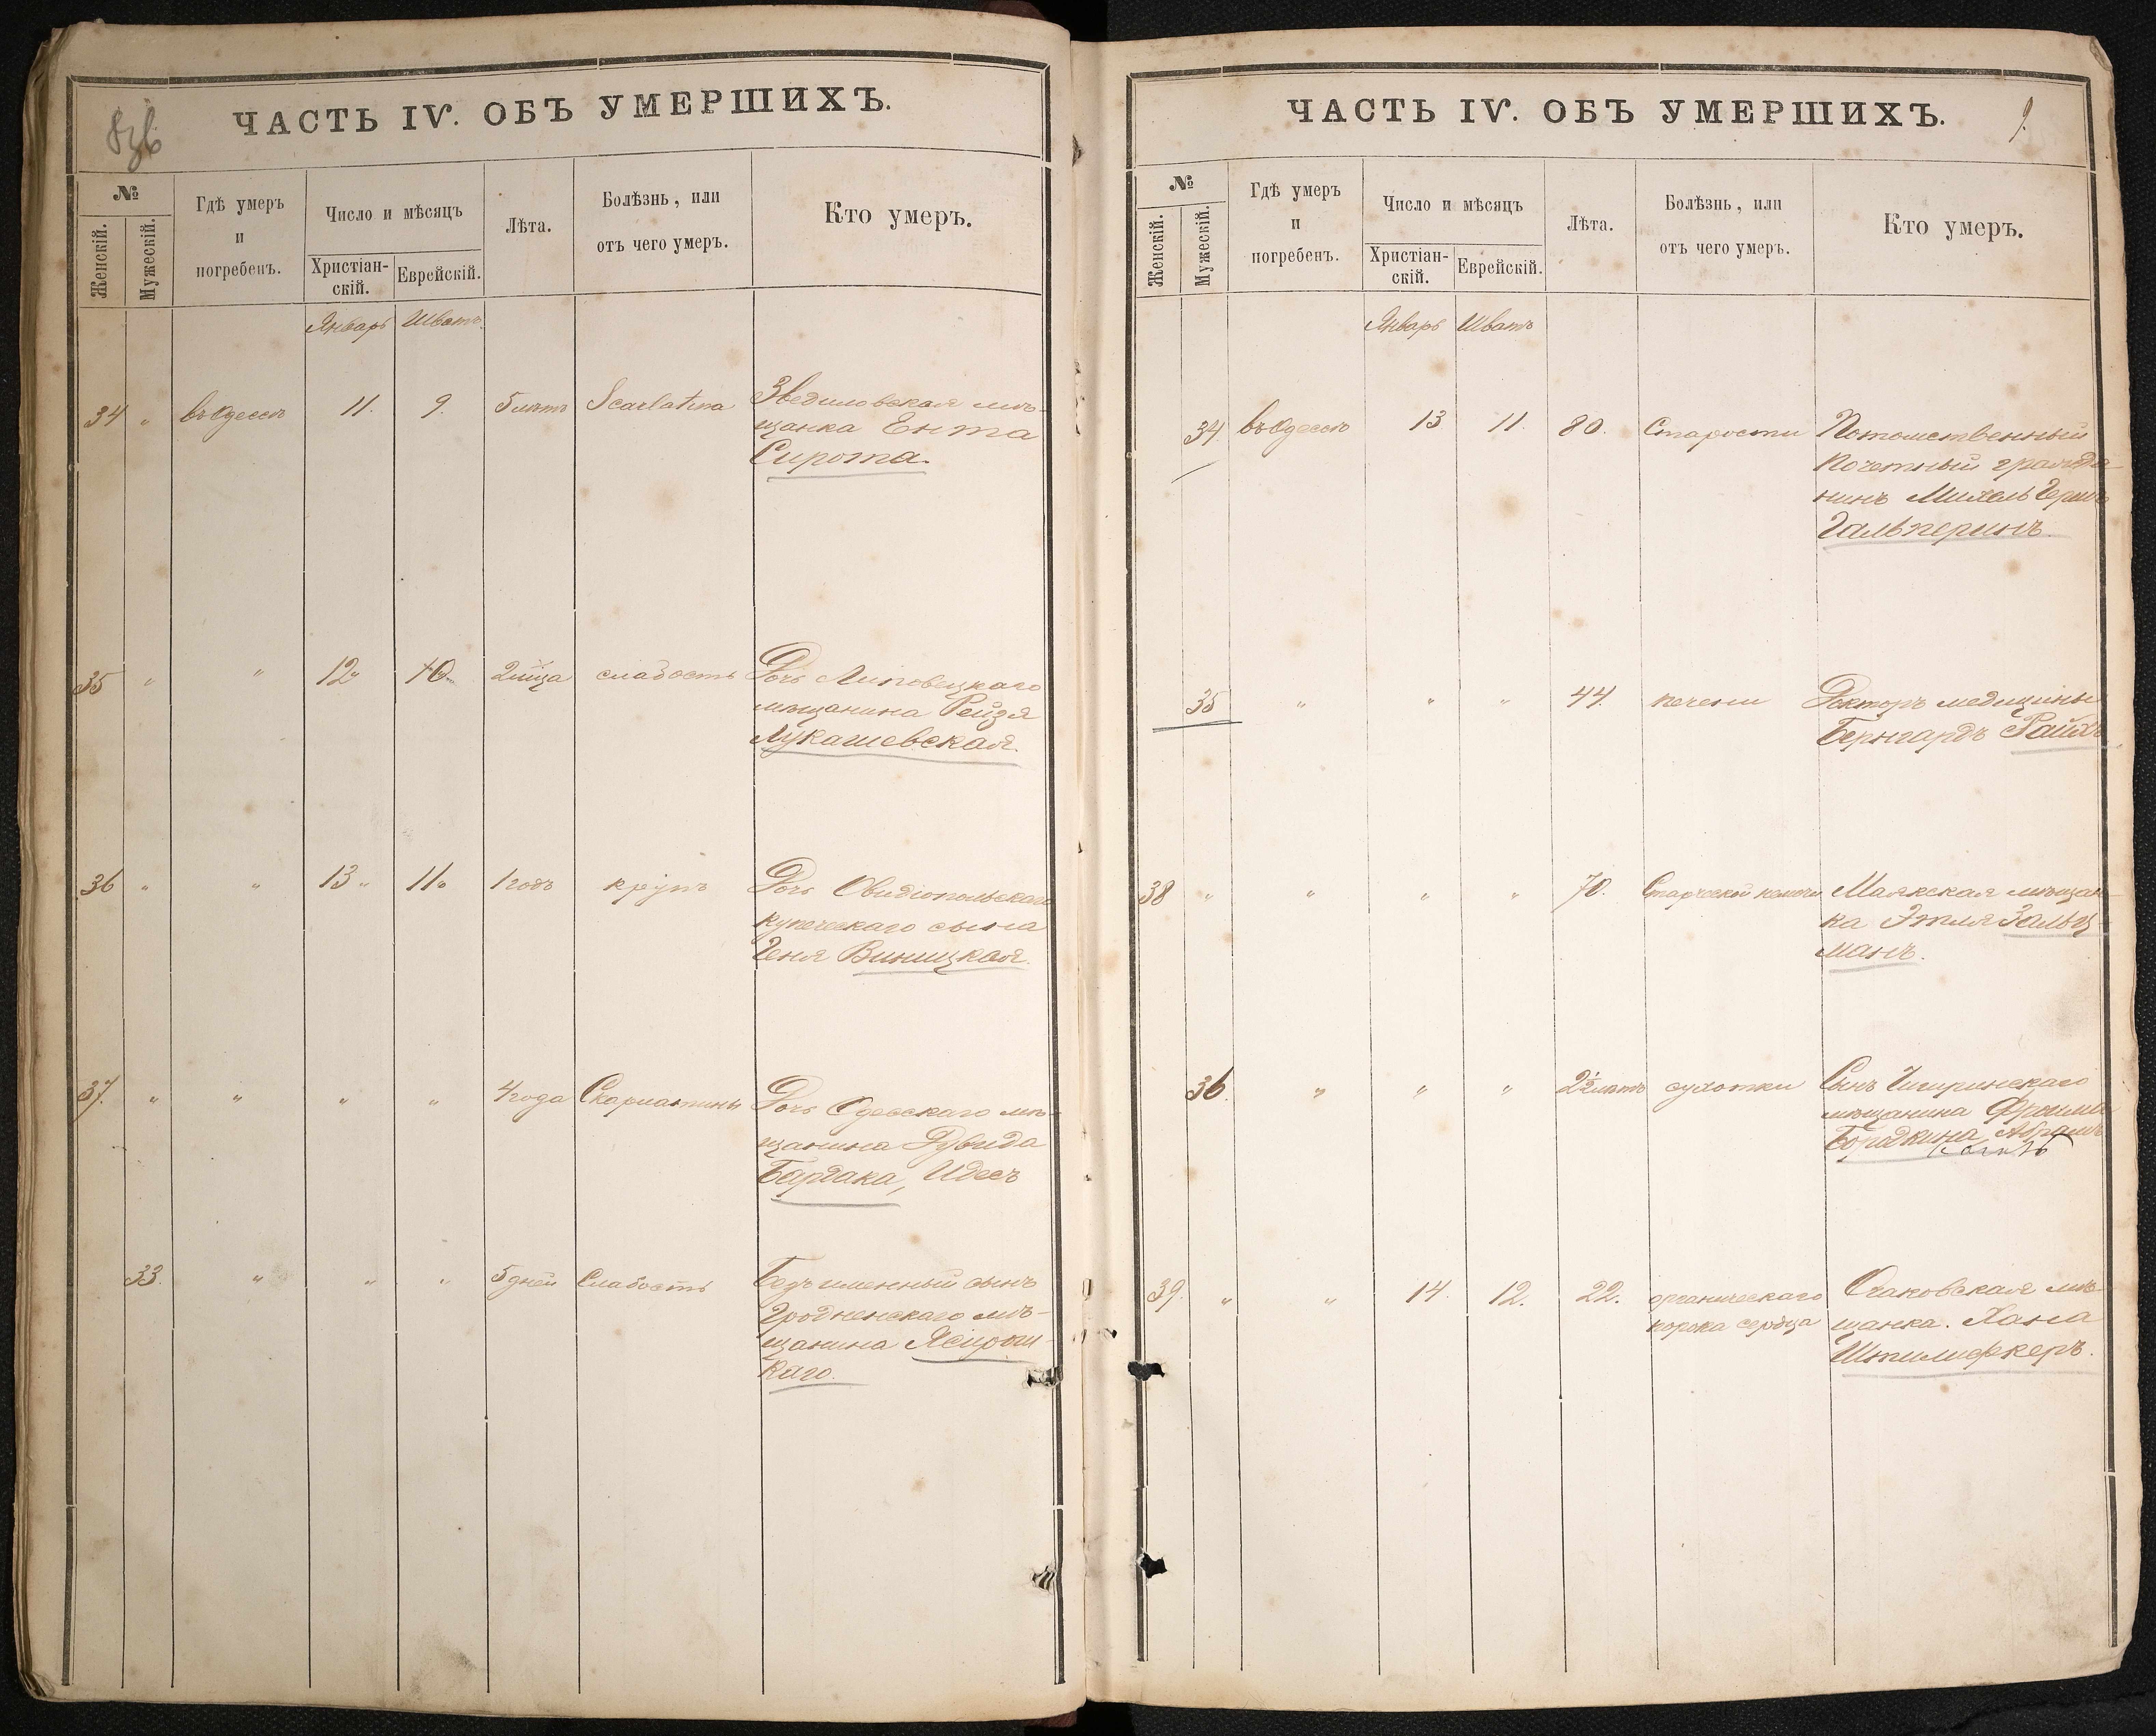 ЧАСТЬ IV. ОБЪ УМЕРШИХЪ.
№
Женскій.
Мужескій.
Гдѣ умеръ
и
погребенъ.
Число и мѣсяцъ
Христіан-
скій.
Еврейскій.
Лѣта.
Болѣзнь, или
отъ чего умеръ.
Кто умеръ.
Январь Шватъ
34 " въ Одессѣ 11. 9. 5 лѣтъ Scarlatina
мѣ-
щанка Ента
Сирота.
35 " " 12 10 2 м-ца слабость Дочь Липовецкаго
мѣщанина Рейзя
Лукашевская.
36 " " 13 11 1 годъ крупъ Дочь Овидіопольскаго
купеческаго сына
Геня Виницкая.
37. " " " " 4 года Скарлатины Дочь Одесскаго мѣ-
щанина Дувида
Бардака, Идесъ
33. " " " 5 дней Слабость Безъименный сынъ
Гродненскаго мѣ-
щанина
каго.
ЧАСТЬ IV. ОБЪ УМЕРШИХЪ.
9.
№
Женскій.
Мужескій.
Гдѣ умеръ
и
погребенъ.
Число и мѣсяцъ
Христіан-
скій.
Еврейскій.
Лѣта.
Болѣзнь, или
отъ чего умеръ.
Кто умеръ.
Январь Шватъ
34. въ Одессѣ 13 11. 80. Старости Потомственный
Почетный гражда-
нинъ Михель Гершъ
Гальперинъ.
35 " " " 44. печени Докторъ медицины
Бернгардъ Райхъ
38 " " " " 70. Старческой немочи Маякская мѣщан-
ка Этля Зальц-
манъ.
36. " " " 2½ лѣтъ сухотки Сынъ Чигиринскаго
мѣщанина Фроима
Бородкина, Абрамъ
39. " " 14. 12. 22. органическаго Очаковская мѣ-
порока сердца щанка. Хана
Шпилифкеръ.